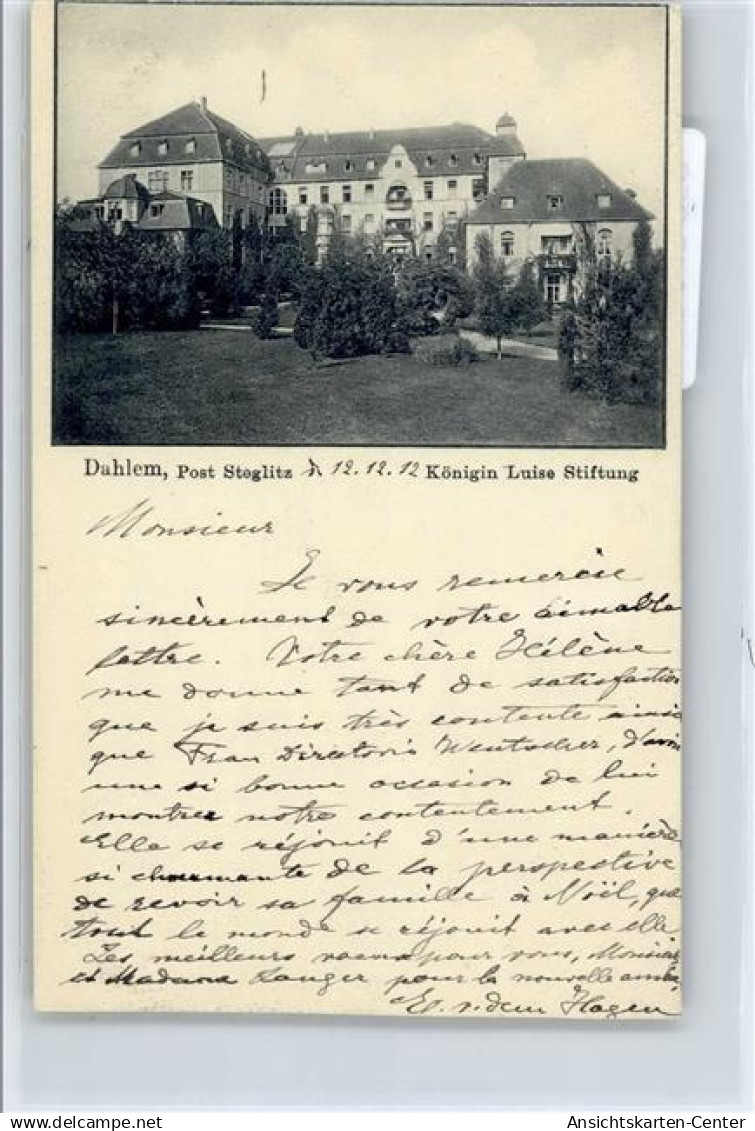 Dahlem, Post Steglitz d. 12.12.12 Königin Luise Stiftung
Monsieur
Je vous remercie
sincèrement de votre aimable
lettre. Votre chère Hélène
me donne tant de satisfaction
que je suis très contente ainsi
que Frau Direktorin Wentscher, d'avoir
une si bonne occasion de lui
montrer notre contentement.
Elle se réjouit d'une manière
si charmante de la perspective
de revoir sa famille à Noël, que
tout le monde se réjouit avec elle
Les meilleurs voeux pour vous, Monsieur
et Madame Langer pour la nouvelle année,
E. v. dem Hagen
Ansichtskarten-Center